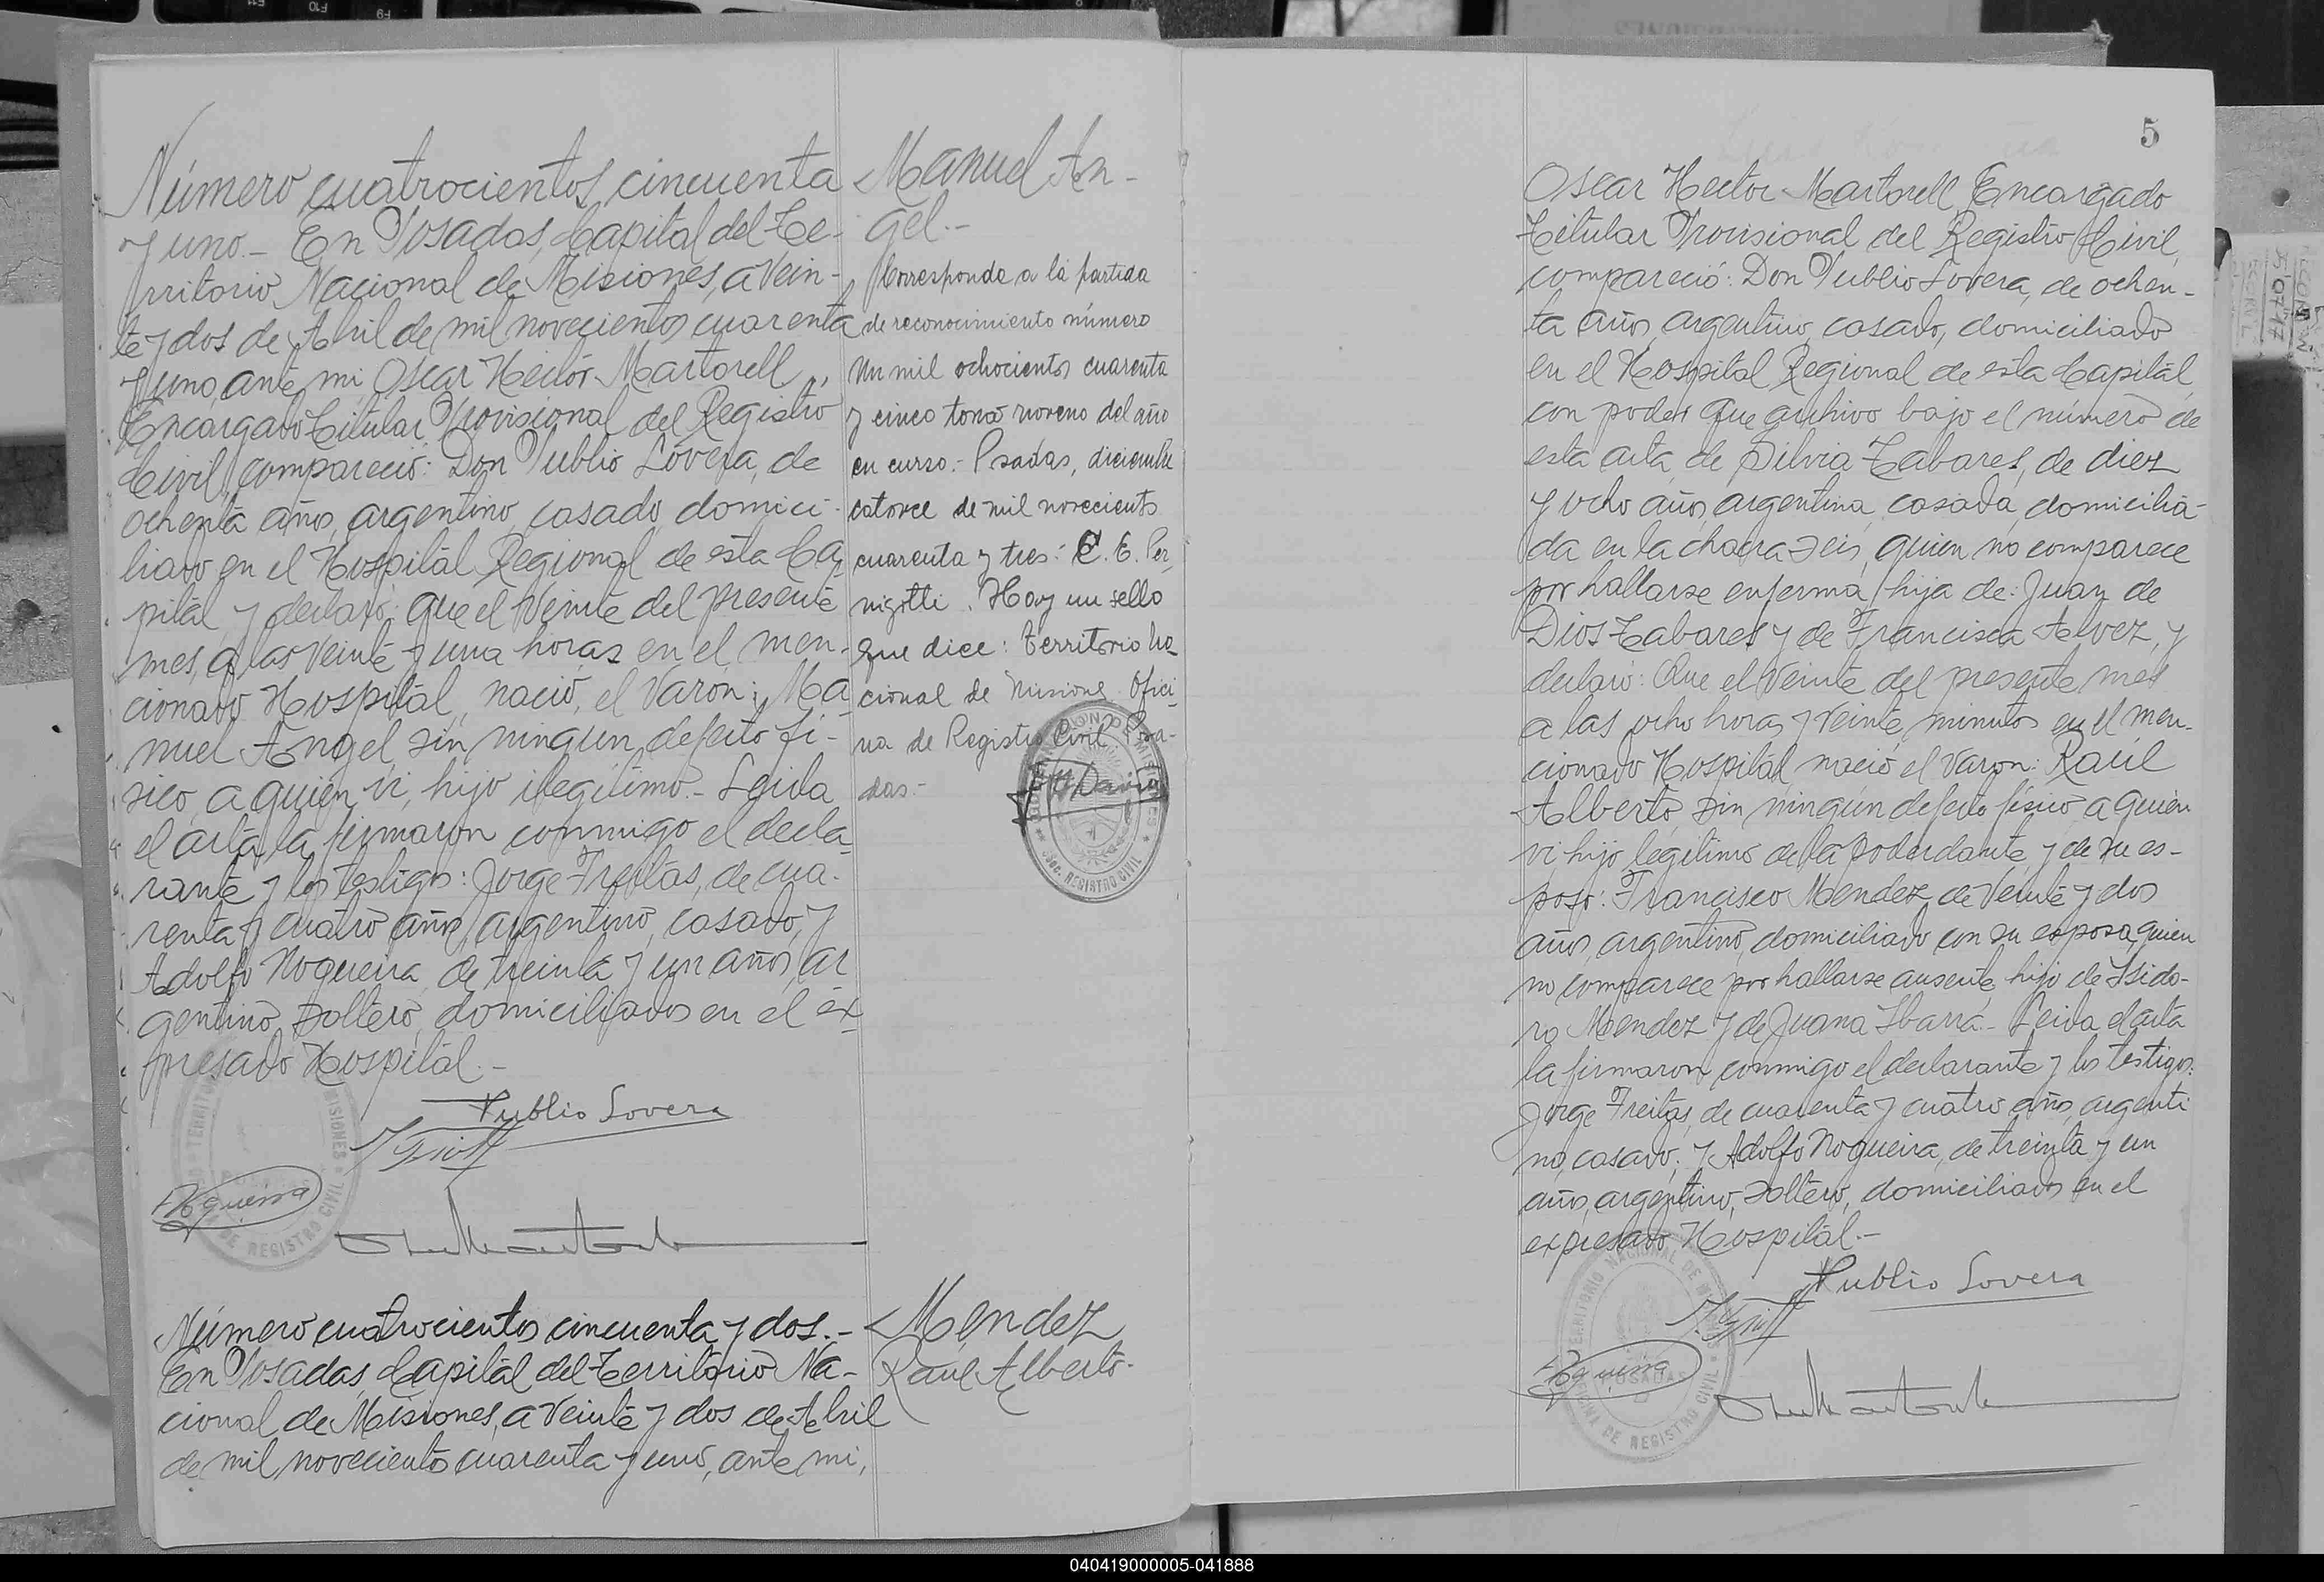 Número cuatrocientos cincuenta
y uno.- En Posadas, Capital del Te-
rritorio Nacional de Misiones, a vein-
te y dos de Abril de mil novecientos cuarenta
y uno, ante mi Oscar Hector Martorell,
Encargado Titular Provisional del Registro
Civil, compareció: Don Publio Lovera, de
ochenta años, argentino, casado, domici-
liado en el Hospital Regional de esta Ca-
pital y declaró: que el veinte del presente
mes, a las veinte y una horas en el men-
cionado Hospital, nació, el varon: Ma-
nuel Angel, sin ningun defecto fi-
sico, a quien vi, hijo ilegitimo.- Leida
el acta, la firmaron conmigo el decla-
rante y los testigos: Jorge Freitas, de cua-
renta y cuatro años, argentino, casado, y
Adolfo Nogueira, de treinta y un años, ar-
gentino, soltero, domiciliados en el ex-
presado Hospital.-
Publio Lovera
Nogueira
Manuel An-
gel.-
Corresponde a la partida
de reconocimiento número
un mil ochocientos cuarenta
y cinco tomo noveno del año
en curso.- Posadas, diciembre
catorce de mil novecientos
cuarenta y tres: C. E. Per-
nigotti. Hay un sello
que dice: Territorio Na-
cional de Misiones Ofici-
na de Registro Civil Posa-
das.-
REGISTRO CIVIL
Número cuatrocientos cincuenta y dos.-
En Posadas, Capital del Territorio Na-
cional de Misiones, a veinte y dos de Abril
de mil novecientos cuarenta y uno, ante mi,
Mendez
Raúl Alberto.-
5
Oscar Hector Martorell, Encargado
Titular Provisional del Registro Civil,
compareció: Don Publio Lovera, de ochen-
ta años, argentino, casado, domiciliado
en el Hospital Regional de esta Capital,
con poder que archivo bajo el número de
esta acta, de Silvia Tabares, de diez
y ocho años, argentina, casada, domicilia-
da en la chacra seis, quien no comparece
por hallarse enferma, hija de: Juan de
Dios Tabares y de Francisca Alvez, y
declaró: Que el veinte del presente mes
a las ocho horas y veinte minutos en el men-
cionado Hospital, nació el varon: Raúl
Alberto, sin ningún defecto físico, a quien
vi, hijo legitimo de la poderdante y de su es-
poso: Francisco Mendez, de veinte y dos
años, argentino, domiciliado con su esposa, quien
no comparece por hallarse ausente, hijo de Isido-
ro Mendez y de Juana Ibarra.- Leida el acta
la firmaron conmigo el declarante y los testigos:
Jorge Freitas, de cuarenta y cuatro años, argenti
no, casado; y Adolfo Nogueira, de treinta y un
años, argentino, soltero, domiciliados en el
expresado Hospital.-
Publio Lovera
Nogueira
TERRITORIO NACIONAL DE MISIONES
OFICINA DE REGISTRO CIVIL
POSADAS
040419000005-041888